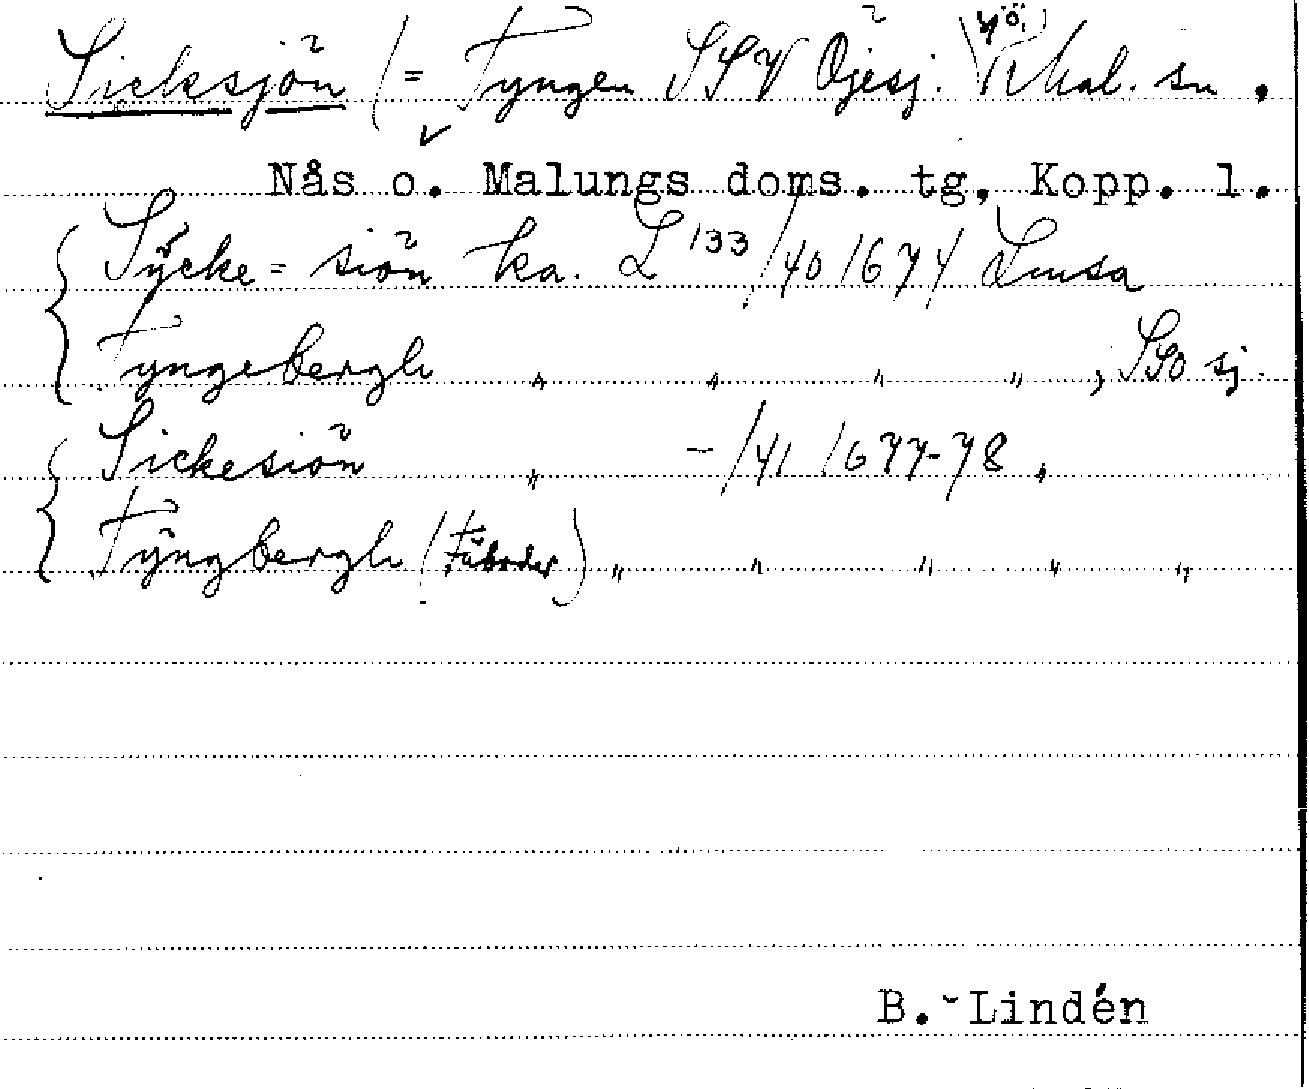 Sicksjön (= Tyngen SSV Öjesj. Mal. sn.
Nås o. Malungs doms. tg, Kopp. l.
Sÿcke=siön ka. L 133/40 1674 Limsa
Tyngebergh " " " " , SSO sj.
Sickesiön " -/41 1677-78 "
Tÿngbergh (Fäboder) " " " " "
B. Lindén